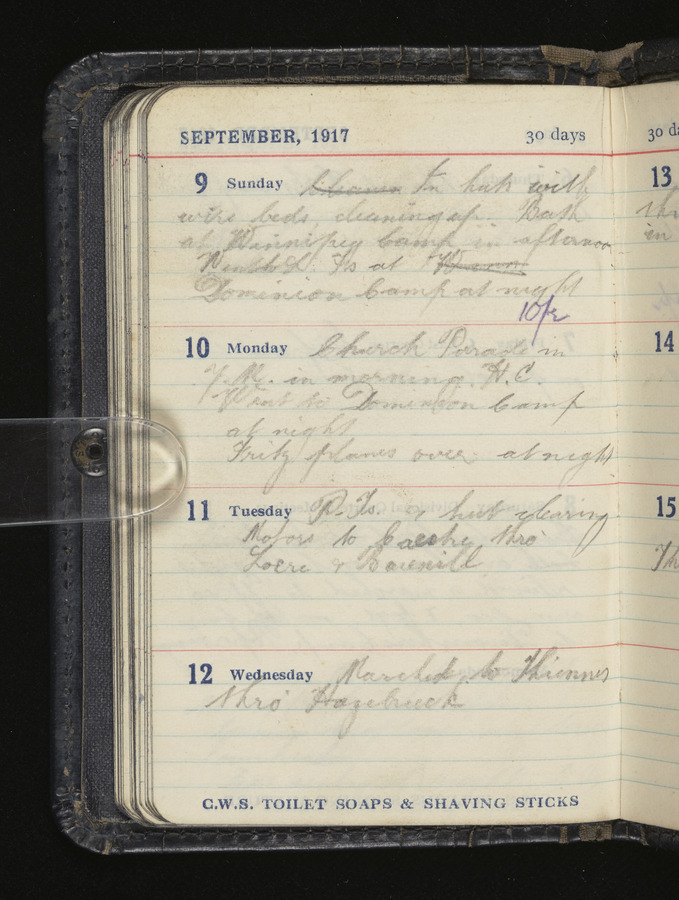 SEPTEMBER, 1917 30 days
9 Sunday Cleaned In huts with
wire beds, cleaning up. Bath
at Winnipeg Camp in afternoon
at
Dominion Camp at night
10/2
10 Monday Church Parade in
Y.M. in morning, H.C.
Went to Dominion Camp
at night
Fritz planes over at night
11 Tuesday P.Ts. & hut clearing
Motors to Caestre thro'
Locre & Bailleul
12 Wednesday Marched to Thiennes
thro' Hazebruck
C.W.S. TOILET SOAPS & SHAVING STICKS
30 d
13
in
14
15
Th